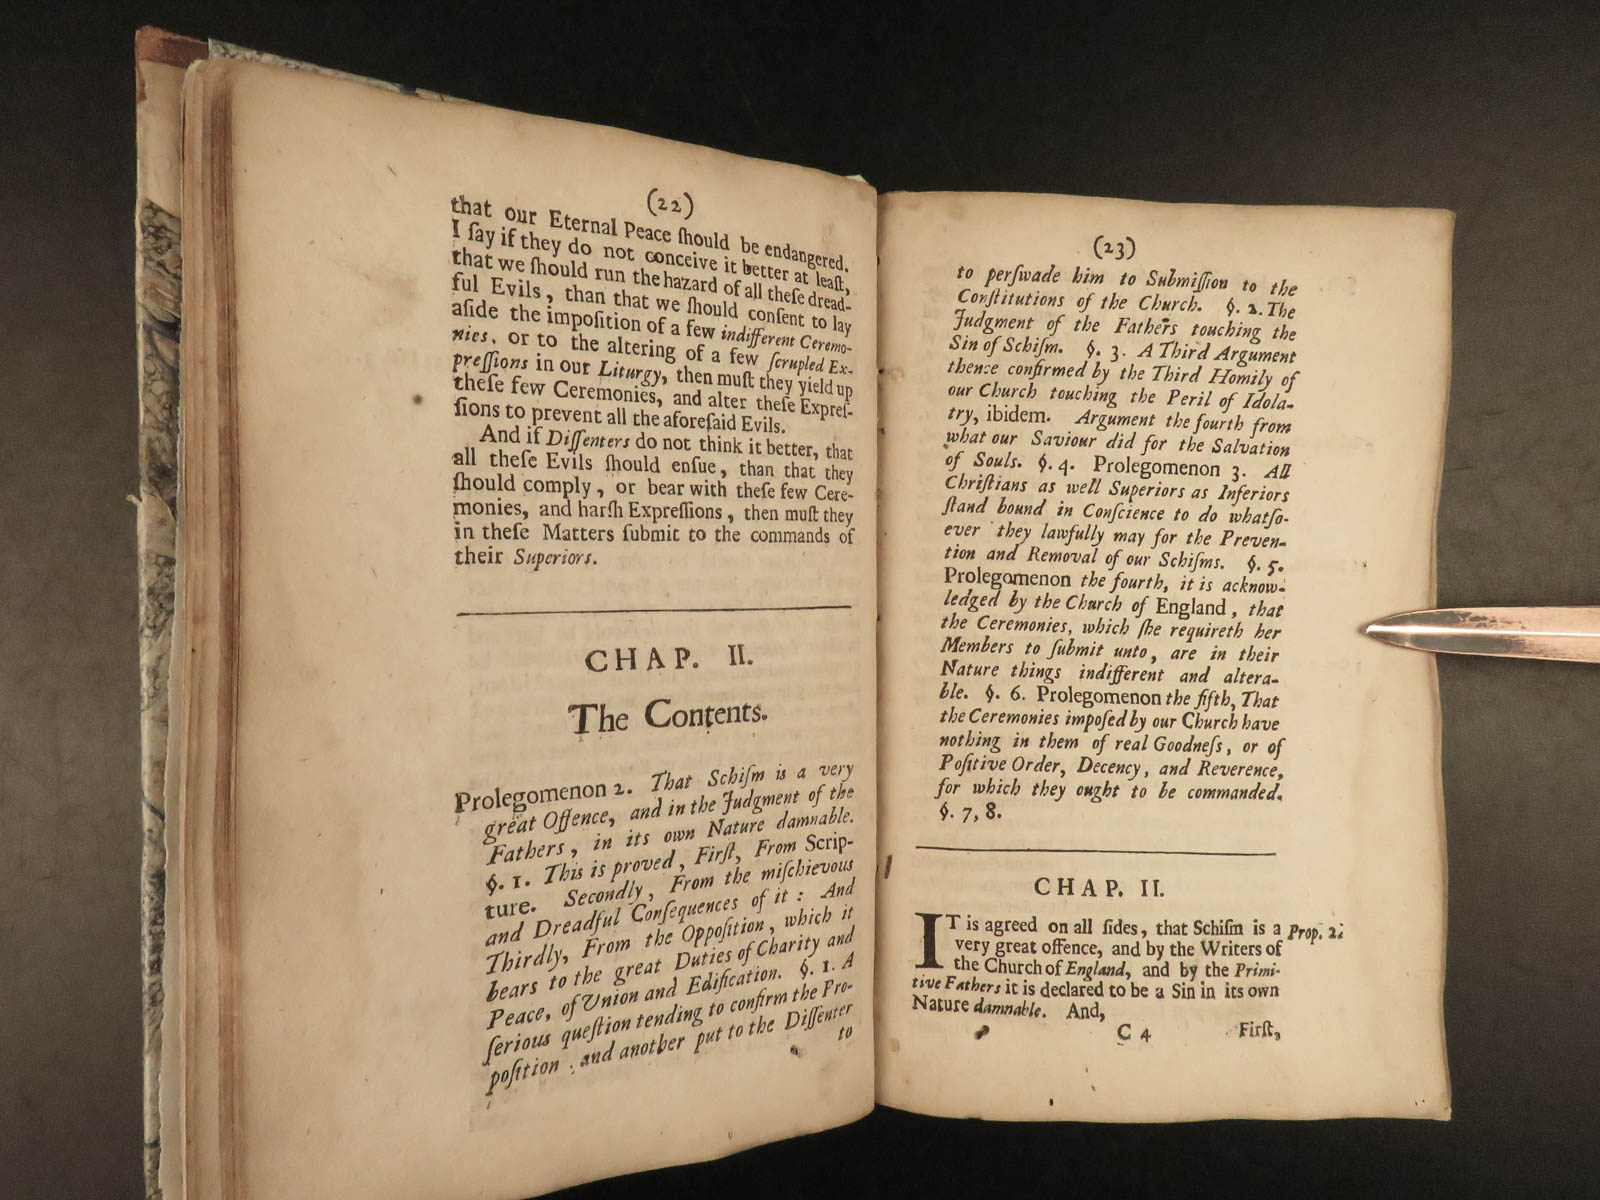 (22)
that our Eternal Peace ſhould be endangered.
I ſay if they do not conceive it better at leaſt,
that we ſhould run the hazard of all theſe dread-
ful Evils, than that we ſhould conſent to lay
aſide the impoſition of a few indifferent Ceremo-
nies, or to the altering of a few ſcrupled Ex-
preſſions in our Liturgy, then muſt they yield up
theſe few Ceremonies, and alter theſe Expreſ-
ſions to prevent all the aforeſaid Evils.
And if Diſſenters do not think it better, that
all theſe Evils ſhould enſue, than that they
ſhould comply, or bear with theſe few Cere-
monies, and harſh Expreſſions, then muſt they
in theſe Matters ſubmit to the commands of
their Superiors.
CHAP. II.
The Contents.
Prolegomenon 2. That Schiſm is a very
great Offence, and in the Judgment of the
Fathers, in its own Nature damnable.
§. 1. This is proved, Firſt, From Scrip-
ture. Secondly, From the miſchievous
and Dreadful Conſequences of it: And
Thirdly, From the Oppoſition, which it
bears to the great Duties of Charity and
Peace, of Union and Edification. §. 1. A
ſerious queſtion tending to confirm the Pro-
poſition, and another put to the Diſſenter
to
(23)
to perſwade him to Submiſſion to the
Conſtitutions of the Church. §. 2. The
Judgment of the Fathers touching the
Sin of Schiſm. §. 3. A Third Argument
thence confirmed by the Third Homily of
our Church touching the Peril of Idola-
try, ibidem. Argument the fourth from
what our Saviour did for the Salvation
of Souls. §. 4. Prolegomenon 3. All
Chriſtians as well Superiors as Inferiors
ſtand bound in Conſcience to do whatſo-
ever they lawfully may for the Preven-
tion and Removal of our Schiſms. §. 5.
Prolegomenon the fourth, it is acknow-
ledged by the Church of England, that
the Ceremonies, which ſhe requireth her
Members to ſubmit unto, are in their
Nature things indifferent and altera-
ble. §. 6. Prolegomenon the fifth, That
the Ceremonies impoſed by our Church have
nothing in them of real Goodneſs, or of
Poſitive Order, Decency, and Reverence,
for which they ought to be commanded.
§. 7, 8.
CHAP. II.
IT is agreed on all ſides, that Schiſm is a Prop. 2.
very great offence, and by the Writers of
the Church of England, and by the Primi-
tive Fathers it is declared to be a Sin in its own
Nature damnable. And,
C 4 Firſt,